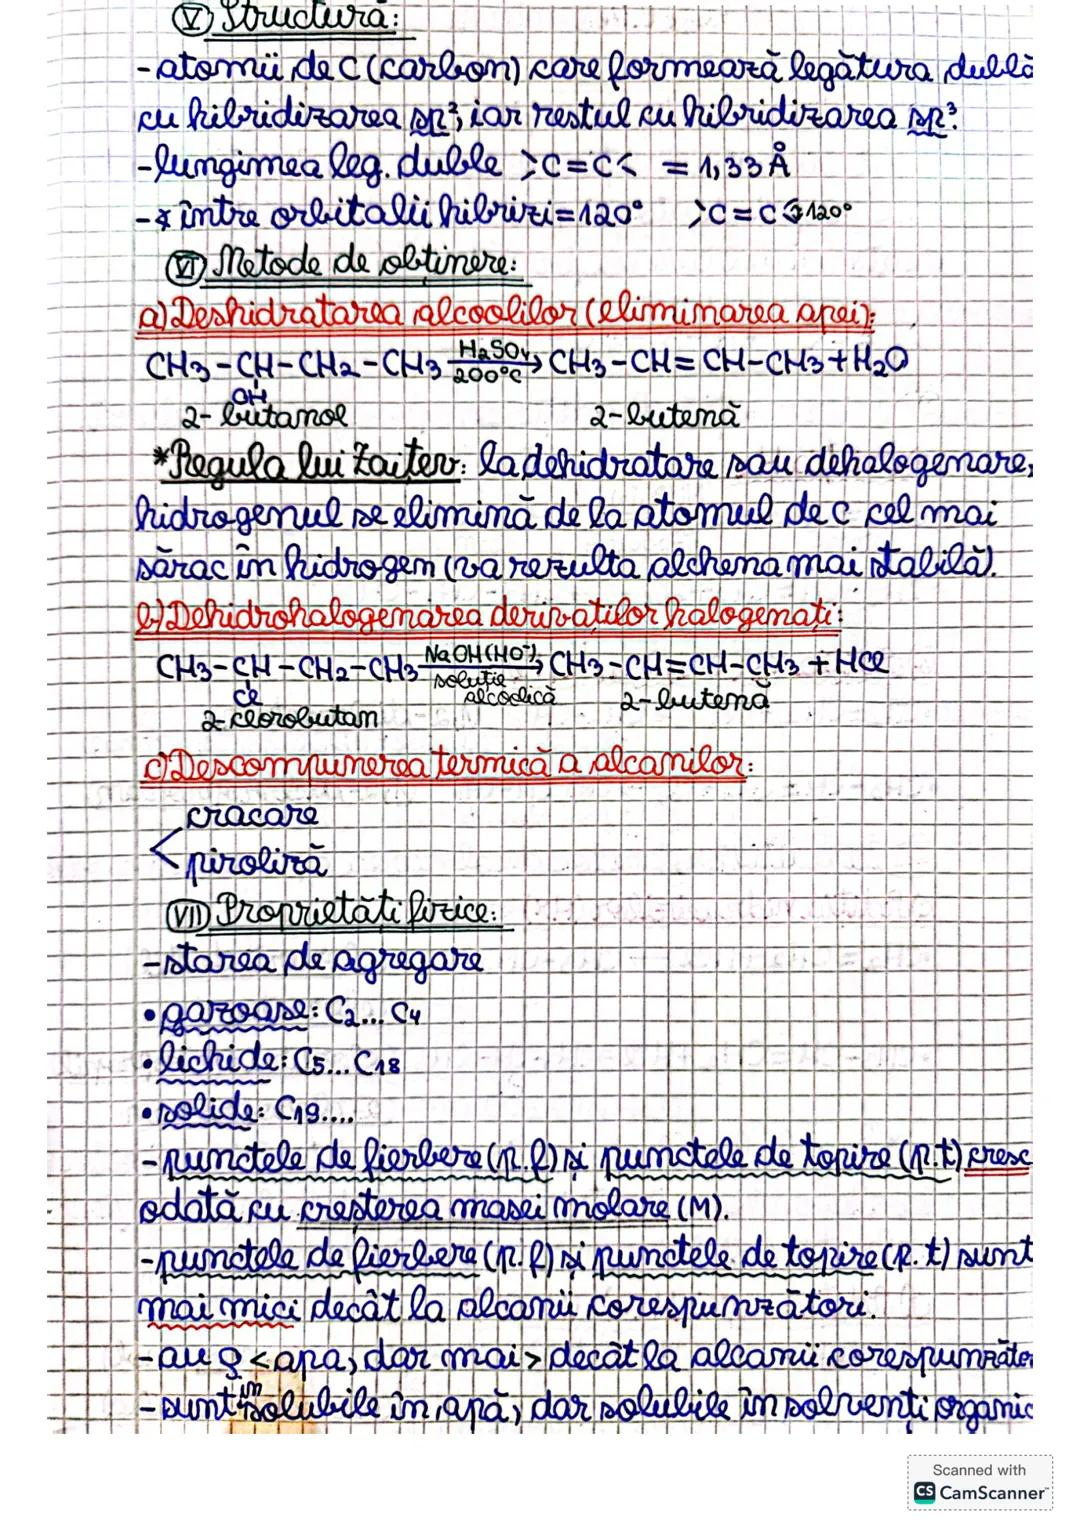 Ⓥ Structură:
-atomii de C (carbon) care formează legătura dublă
cu hibridizarea sp², iar restul cu hibridizarea sp³.
-lungimea leg. duble >C=C< = 1,33 Å
-∢ între orbitalii hibrizi=120° >C=C< 120°
Ⓥⓘ Metode de obtinere:
a) Deshidratarea alcoolilor (eliminarea apei):
CH3-CH-CH2-CH3 H2SO4 200°C → CH3-CH=CH-CH3+H2O
OH
2-butanol 2-butenă
*Regula lui Zaitev: la dehidratare sau dehalogenare,
hidrogenul se elimină de la atomul de C cel mai
sărac în hidrogen (va rezulta alchena mai stabilă).
b) Dehidrohalogenarea derivaților halogenați:
CH3-CH-CH2-CH3 NaOH(HO⁻) soluție alcoolică → CH3-CH=CH-CH3 + HCl
Cl
2-clorobutan 2-butenă
c) Descompunerea termică a alcanilor:
cracare
< piroliză
VII Proprietăti fizice:
-starea de agregare
• gazoase: C2... C4
• lichide: C5... C18
• solide: C19....
-punctele de fierbere (p.f) si punctele de topire (p.t) cresc
odată cu cresterea masei molare (M).
-punctele de fierbere (p.f) si punctele de topire (p.t) sunt
mai mici decât la alcanii corespunzători.
-au ρ < apa, dar mai > decât la alcanii corespunzător
-sunt insolubile în apă, dar solubile în solvenți organic
Scanned with
CS CamScanner